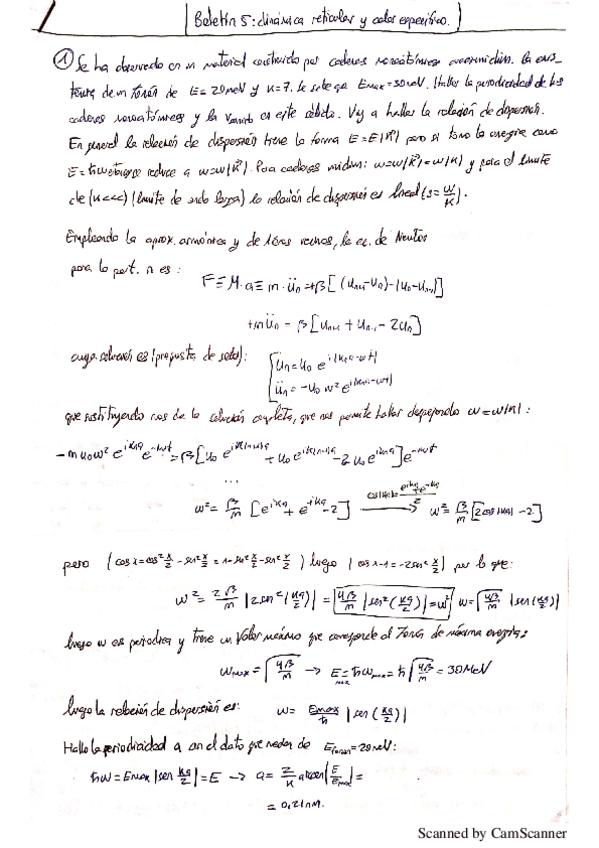 Boletín 5: dinámica reticular y calor específico.
① Se ha observado en un material constituido por cadenas monoatómicas
de un fonón de E = 20meV y K=7. Se sabe que Emax = 30meV. Hallar la periodicidad de las
cadenas monoatómicas y la en este sólido. Voy a hallar la relación de dispersión.
En general la relación de dispersión tiene la forma E=E(K) pero si tomo la energía como
E=ħω se reduce a ω=ω(K). Para cadenas : ω=ω(K)=ω(K) y para el límite
de (K<<) (límite de onda larga) la relación de dispersión es lineal (s=ω/K).
Empleando la aprox. armónica y de 1eros vecinos, la ec. de Newton
para la part. n es:
F≡M·a≡m·ün=+β[(un+1-un)-(un-un-1)]
+mün = β[un+1+un-1-2un]
cuya solución es (propuesta de ):
un=u0 e^i(kna-ωt)
ün=-u0 ω² e^i(kna-ωt)
que sustituyendo nos da la solución completa, que nos permite hallar ω=ω(K):
-m u0ω² e^ikna e^-iωt=β[u0 e^ik(n+1)a + u0 e^ik(n-1)a -2u0 e^ikna]e^-iωt
...
ω²= β/m [e^ika + e^-ika -2] → ω²= β/m [2cos(ka)-2]
pero (cos x=cos² x/2 - sen² x/2 = 1-sen² x/2 - sen² x/2) luego (cos x-1=-2sen² x/2) por lo que:
ω²= 2β/m |2sen²(ka/2)| = 4β/m |sen²(ka/2)|=ω² ω=√4β/m |sen(ka/2)|
luego ω es periodica y tiene un valor máximo que corresponde al fonón de máxima energía:
ωmax=√4β/m → Emax=ħωmax=ħ√4β/m=30MeV
luego la relación de dispersión es: ω= Emax/ħ |sen(ka/2)|
Hallo la periodicidad a con el dato que me dan de Efonon=20meV:
ħω=Emax|sen ka/2|=E → a= 2/k arcsen|E/Emax|=
=0,21nm.
Scanned by CamScanner